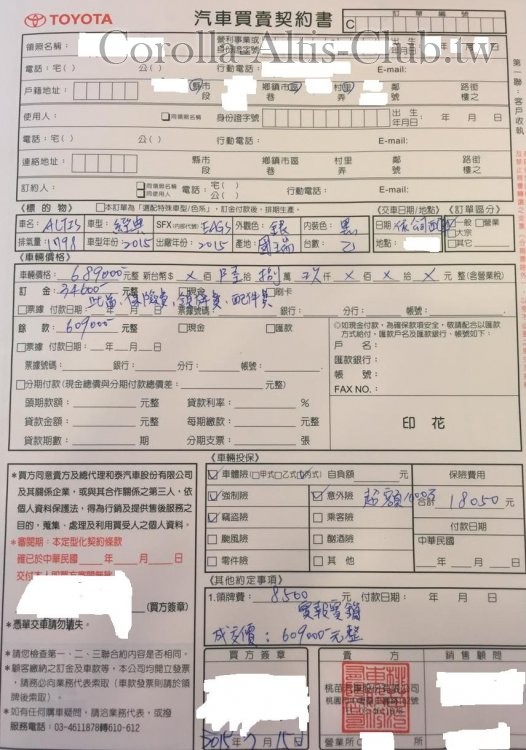 TOYOTA
汽車買賣契約書
訂單編號
C
Corolla Altis-Club.tw
第一聯：客戶收執
領照名稱：
營利事業或
身份證字號
出生
年月日
電話：宅( ) 公( ) 行動電話： E-mail:
戶籍地址： 縣市 鄉鎮市區 村里 鄰 路街
段 巷 弄 號 樓之
使用人： 同領照名稱 身份證字號 出生年月日： 年 月 日
電話：宅( ) 公( ) 行動電話： E-mail:
連絡地址： 縣市 鄉鎮市區 村里 鄰 路街
段 巷 弄 號 樓之
訂約人： 同領照名稱 同使用人 電話：宅( ) 行動電話： E-mail:
《標的物》 本訂單為「選配特殊車型/色系」，訂金付款後，排期生產。 《交車日期/地點》 《訂單區分》
車名：ALTIS 車型：經典 SFX(內部代號) EAGS 外觀色：銀 內裝色：黑 日期 依公司 一般 營業
排氣量：1798 車型年份：2015 出廠年份：2015 產地：國瑞 台數：乙 地點： 大宗 其它
《車輛價格》
車輛價格：689000元 新台幣$ X 佰 陸 拾 捌 萬 玖 仟 X 佰 X 拾 X 元 整(含營業稅)
訂金：34600元 現金 刷卡
票據 付款日期： 年 月 日 票據號碼： 銀行： 分行： 帳號：
餘款：609000元 現金 匯款
票據 付款日期： 年 月 日
票據號碼： 銀行： 分行： 帳號：
◎如現金付款，為確保款項安全，敬請配合以匯款
方式給付，匯款戶名及匯款銀行、帳號如下：
戶名：
匯款銀行：
帳號：
FAX NO.：
分期付款(現金總價與分期付款總價差： 元整)
頭期款額： 元整 貸款利率： %
貸款金額： 元整 每期繳款： 元整
貸款期數： 期 分期支票： 張
印花
《車輛投保》
車體險(甲式乙式丙式) 自負額 元 保險費用
強制險 意外險 超額1000萬 合計 18050 元
竊盜險 乘客險 付款日期
颱風險 酗酒險 中華民國
零件險 其他 年 月 日
*買方同意貴方及總代理和泰汽車股份有限公司
及其關係企業，或與其合作關係之第三人，依
個人資料保護法，得為行銷及提供售後服務之
目的，蒐集、處理及利用買受人之個人資料。
*審閱期：本定型化契約條款
確已於中華民國 年 月 日
(買方簽章)
*憑單交車請勿遺失。
《其他約定事項》
1.領牌費：8500元 付款日期： 年 月 日
實報實銷
成交價：609000元整
*請您檢查第一、二、三聯合約內容是否相同。
*顧客繳納之訂金及車款等，本公司均開立發票
，請務必向業務代表索取（車款發票則請於領
牌後索取）。
*如有任何購車疑問，請洽業務代表。或撥
服務電話：03-4611878轉610-612
買方簽章 貴方 銷售顧問
桃苗汽車股份有限公司
營業所
2015年7月15日